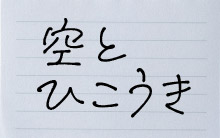 空と
ひこうき